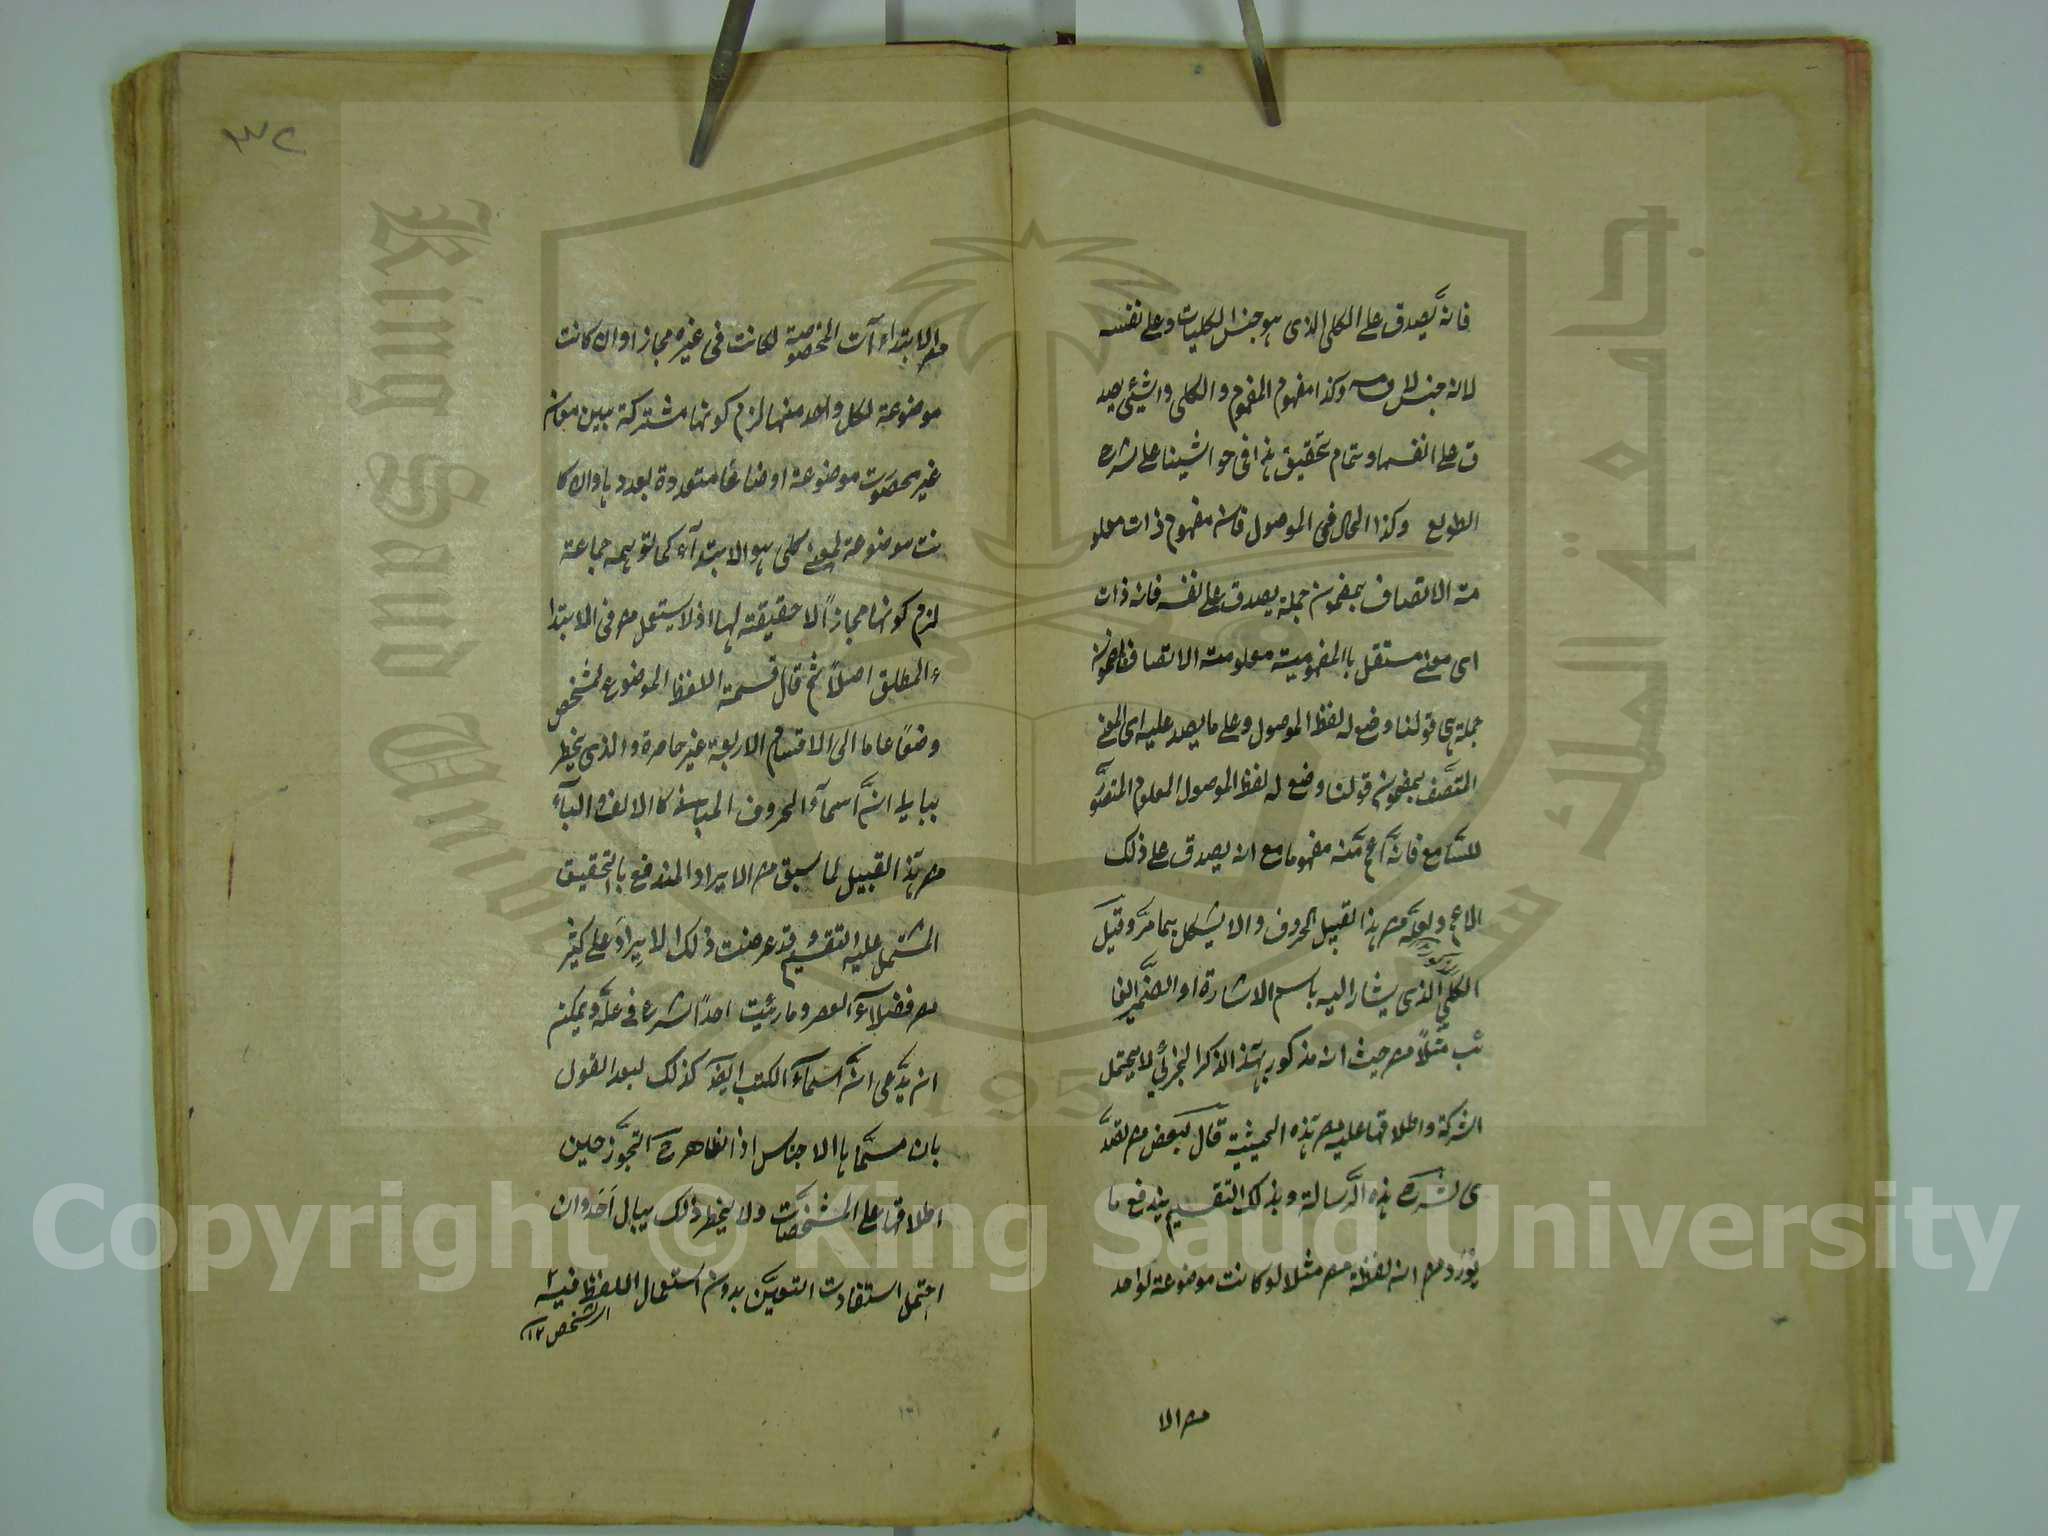 فانه يصدق على الكلى الذى هو جنس الكليات وعلى نفسه
لانه جنس لا وكذا مفهوم المفهوم والكلى والشيئ يصد
ق على انفسها وتمام تحقيق هذا فى حواشينا على شرح
الطوالع وكذا الحال فى الموصول فان مفهوم ذات معلو
مة الاتصاف بمضمون جملة يصدق على نفسه فانه ذات
اى معنى مستقل باالمفهومية معلومة الاتصاف بمضمون
جملة هى قولنا وضع له لفظ الموصول وعلى ما يصد عليه اى المعنى
المتصف بمضمون قولنا وضع له لفظ الموصول المعلوم المتصور
للسامع فانه اعم منه مفهوما مع انه يصدق على ذلك
الاعم ولعله من هذا القبيل الحروف والا يشكل بما مر وقيل
الكلى الذى يشار اليه باسم الاشارة او الضمير الغا
ئب مثلا من حيث انه مذكور بهذا الذكر الجزئى لا يحتمل
الشركة واطلاقها عليه من هذه الحيثية قال بعض من تصد
ى لشرح هذه الرسالة وبذلك التقسيم يندفع ما
يورد من ان لفظة من مثلا لو كانت موضوعة لواحد
من الا
٣٢
من الابتداءآت المخصوصة لكانت فى غيره مجازا وان كانت
موضوعة لكل واحد منها لزم كونها مشتركة بين معان
غير محصورة موضوعة اوضاعا متعددة بعددها وان كا
نت موضوعة لمعنى كلى هو الابتدآء كما توهمه جماعة
لزم كونها مجازا لا حقيقة لها اذ لا يستعمل من فى الابتدا
ء المطلق اصلا ثم قال قسمة اللفظ الموضوع لمشخص
وضعا عاما الى الاقسام الاربعة غير حاصرة والذى يخطر
ببالى ان اسماء الحروف المبانى كا الالف والبآء
من هذا القبيل لما سبق من الايراد المندفع باالتحقيق
المشتمل عليه التقسيم وقد عرضت ذلك الايراد على كثير
من فضلاء العصر وما رئيت احدا شرح فى حله ويمكن
ان يدعى ان اسماء الكتب ايضا كذلك لبعد القول
بان مسماها الاجناس اذ الظاهر ح التجوز حين
اطلاقها على المشخصات ولا يخطر ذلك ببال احد وان
احتمل استفادة التعين بدون استعمال اللفظ فيه
اى الشخص ١٢
King Saud University
1957
جامعة الملك سعود
Copyright © King Saud University